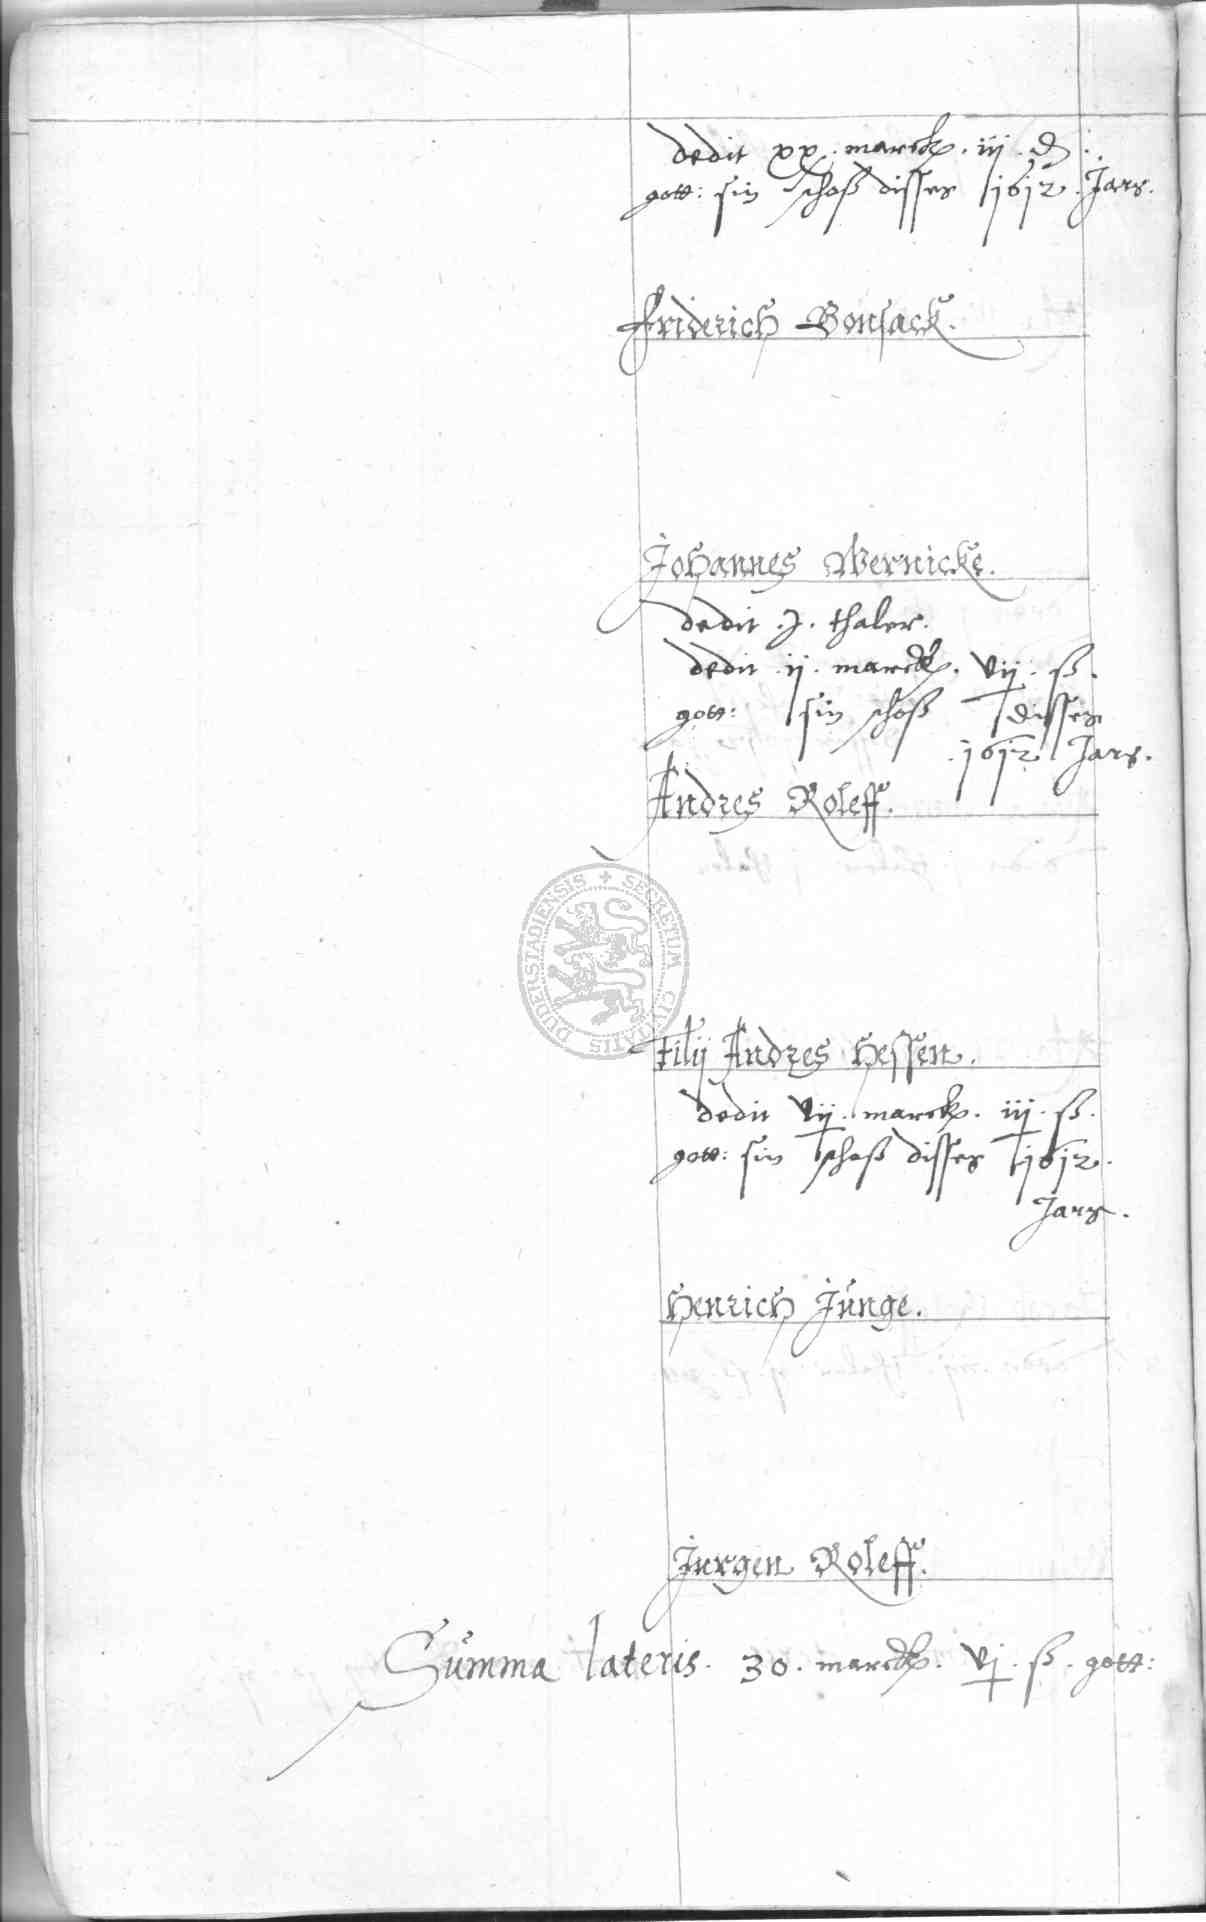 dedit xx. marck. iij. d.
gott: sin schoß disses 1612. Jars.
Friderich Bonsack.
Johannes Wernicke.
dedit .j. thaler.
dedit ij. marck. vij. ß.
gott: sin schoß disses
1612 Jars.
Andres Roleff.
SECRETUM CIVITATIS DUDERSTADIENSIS
Filij Andres Hessen.
dedit vij. marck. iij. ß.
gott: sin schoß disses 1612.
Jars.
Henrich Junge.
Jurgen Roleff.
Summa lateris. 30. marck. vj. ß. gott: